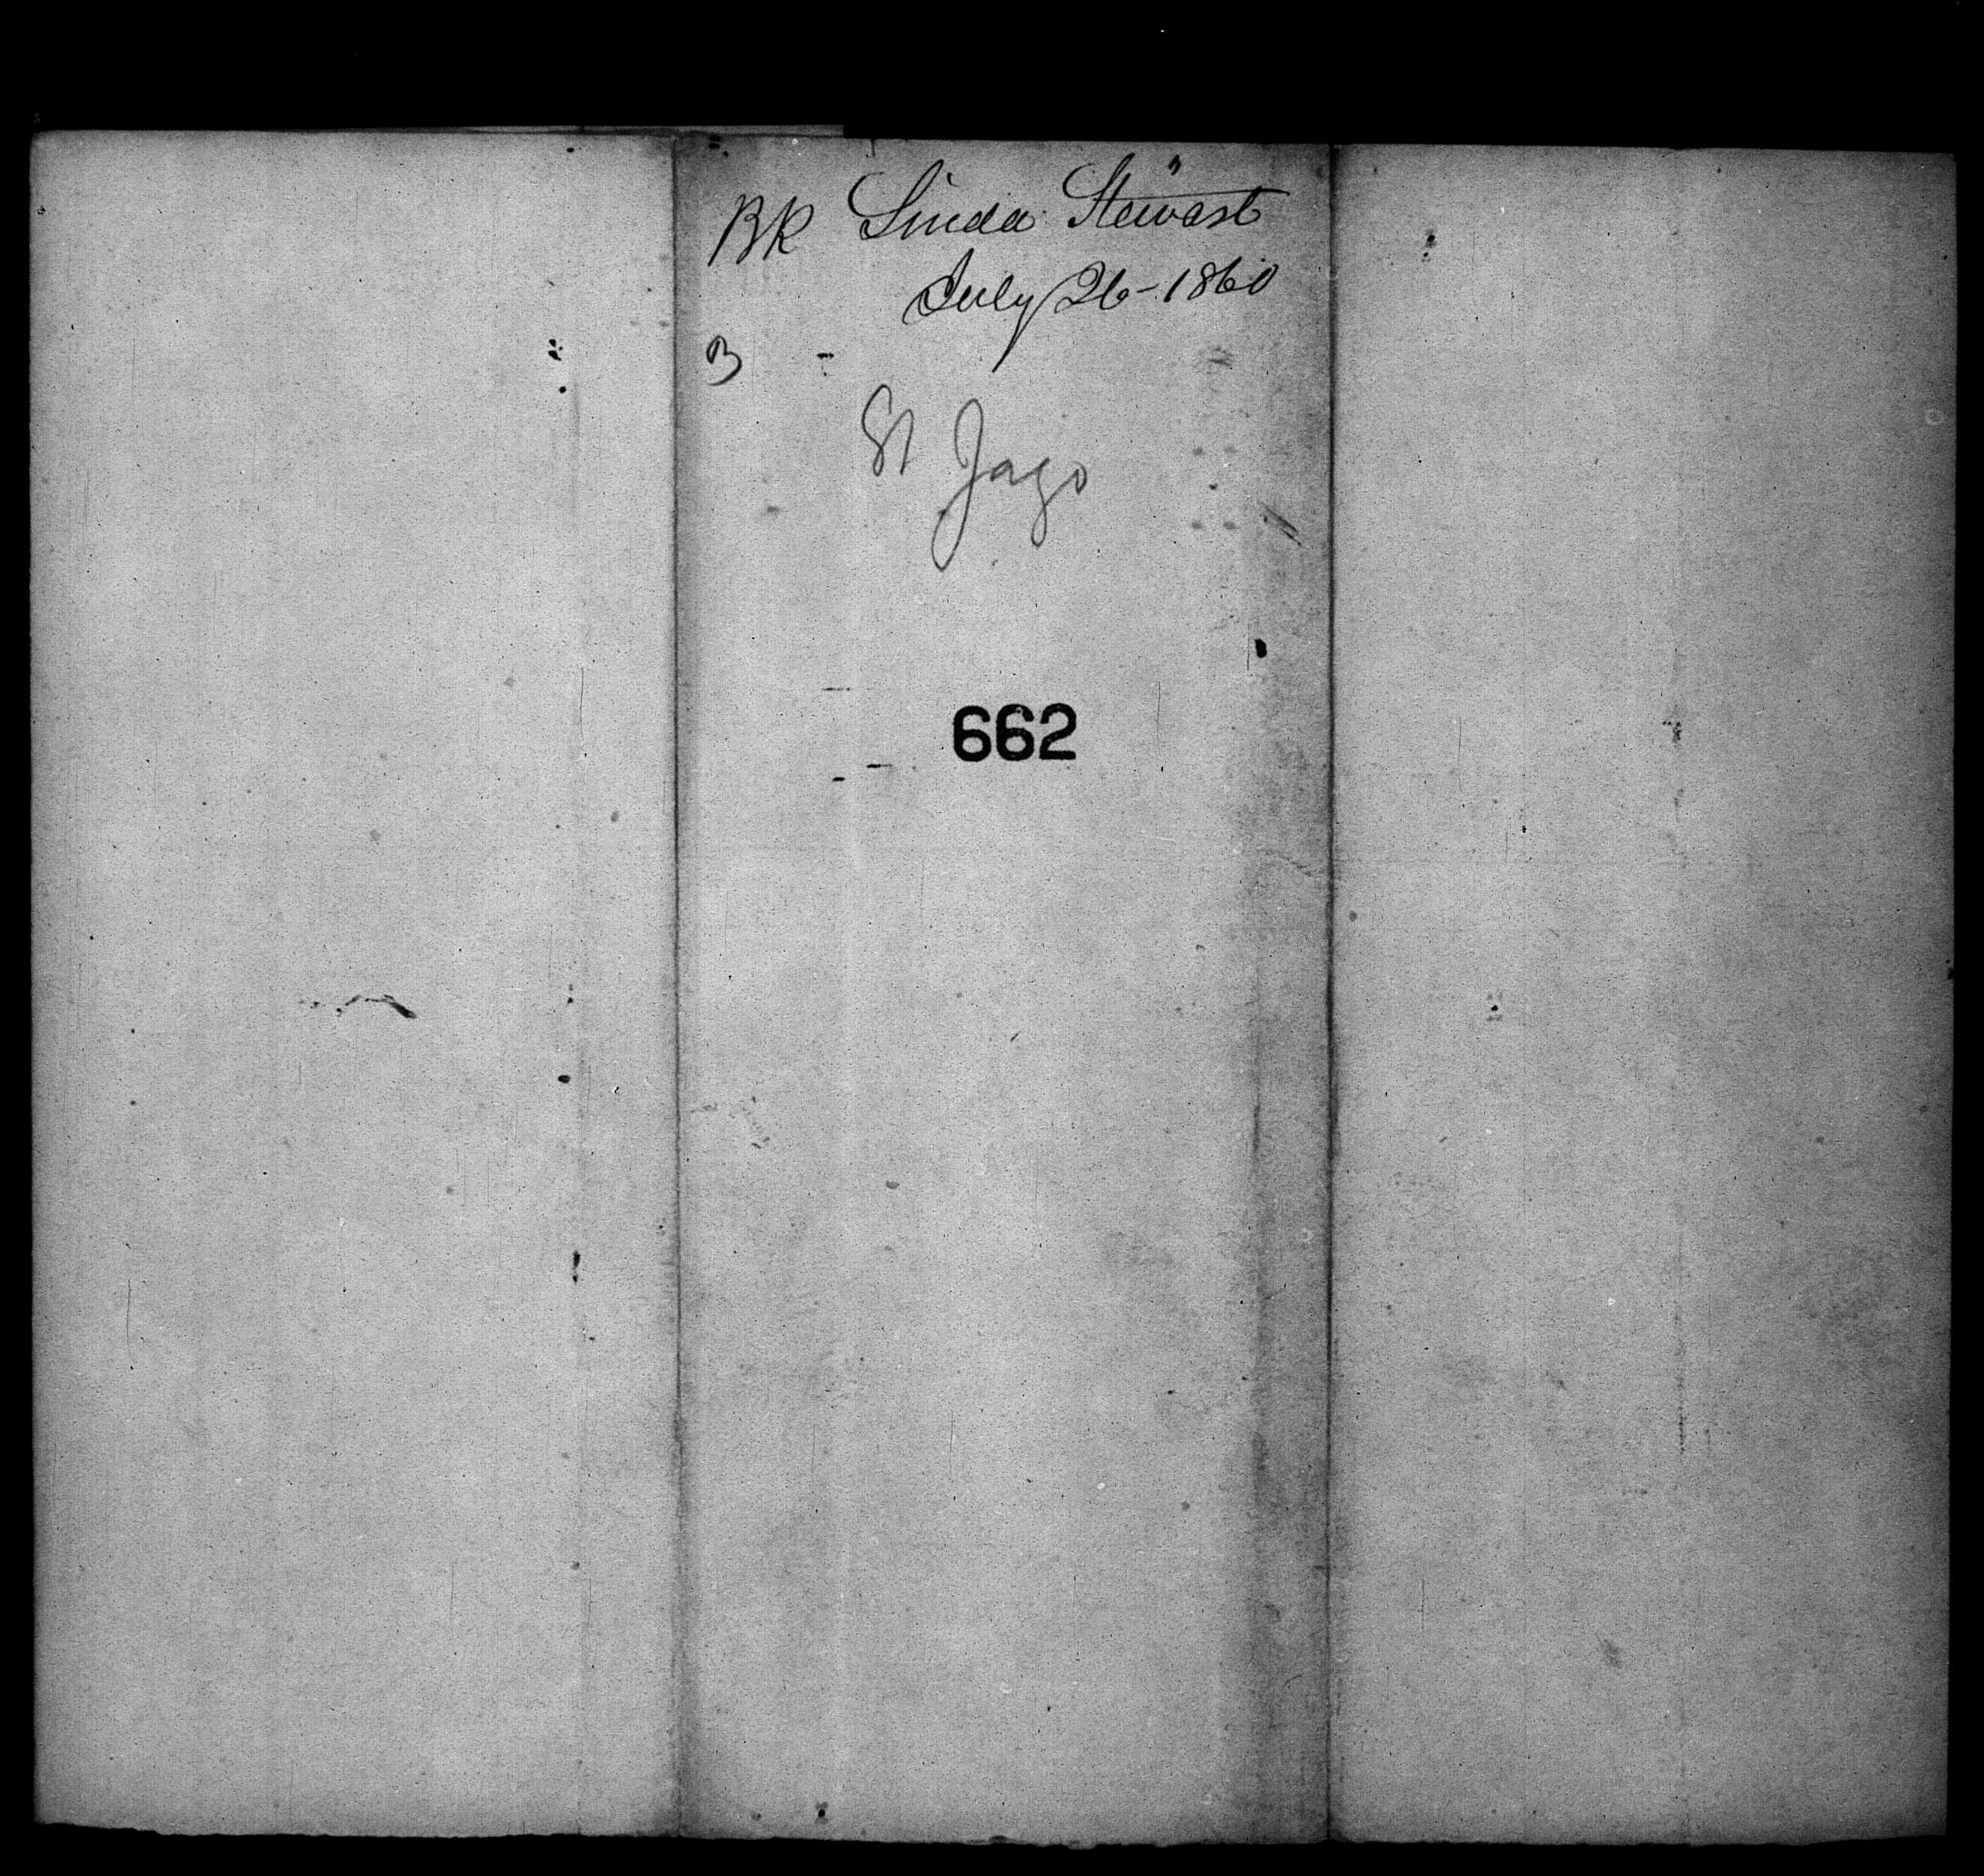 BK Linda Stewart
July 26-1860
3
St Jago
662